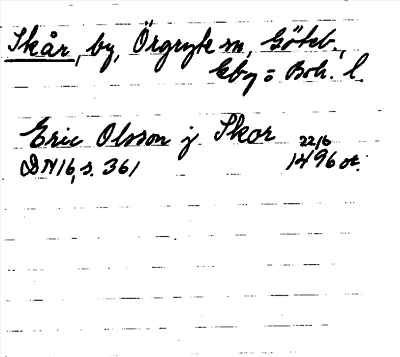 Skår, by, Örgryte sn, Göteb.,
Eby = Boh. l.
Eric Olsson j Skor 22/6
DN 16, s. 361 1496 or.